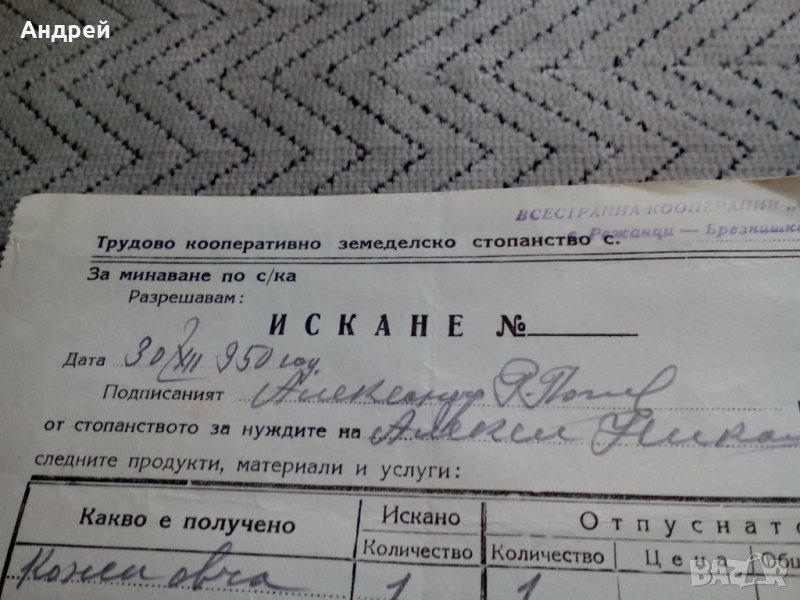 Андрей
ВСЕСТРАННА КООПЕРАЦИЯ „
с. Режанци — Брезнишко
Трудово кооперативно земеделско стопанство с.
За минаване по с/ка
Разрешавам:
ИСКАНЕ №
Дата 30/XII 950 год
Подписаният Александър Р. Попов
от стопанството за нуждите на Алекси
следните продукти, материали и услуги:
Какво е получено Искано Отпуснато
Количество Количество Цена Общ
Кожа овча 1 1
bazar